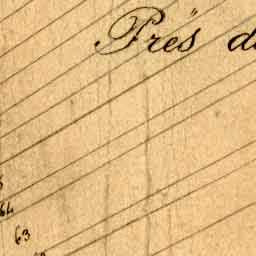 Prés d
64
63